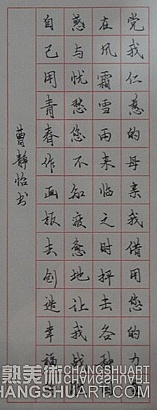 党我仁慈的母亲我借用您的力
在风霜雪雨来临之时挥去各种
惑与忧愁您不知疲惫地让我战
自己用青春作画板去创造幸福
曹静怡书
熟美术 CHANGSHUART
HANGSHUART.COM